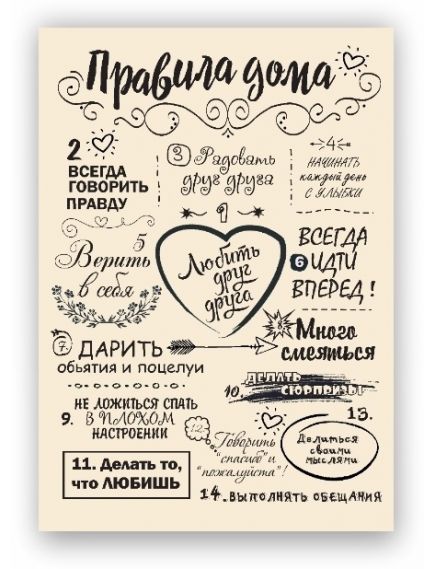 Правила дома
2
ВСЕГДА
ГОВОРИТЬ
ПРАВДУ
3 Радовать
друг друга
4
НАЧИНАТЬ
каждый день
С УЛЫБКИ
1
Любить
друг
друга
5
Верить
в себя
ВСЕГДА
6 ИДТИ
ВПЕРЕД!
7. ДАРИТЬ
обьятия и поцелуи
Много
смеяться
10. ДЕЛАТЬ
СЮРПРИЗЫ
9. НЕ ЛОЖИТЬСЯ СПАТЬ
В ПЛОХОМ
НАСТРОЕНИИ
12.
Говорить
"спасибо" и
"пожалуйста"!
13.
Делиться
своими
мыслями
11. Делать то,
что ЛЮБИШЬ
14. ВЫПОЛНЯТЬ ОБЕЩАНИЯ